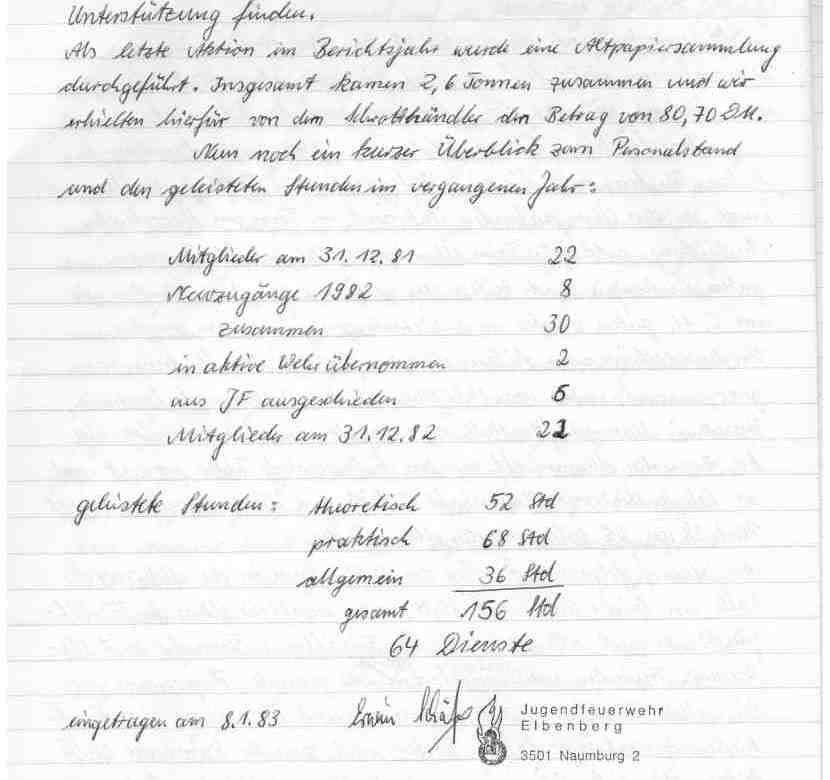 Unterstützung finden.
Als letzte Aktion im Berichtsjahr wurde eine Altpapiersammlung
durchgeführt. Insgesamt kamen 2,6 Tonnen zusammen und wir
erhielten hierfür von dem Schrotthändler den Betrag von 80,70 DM.
Nun noch ein kurzer Überblick zum Personalstand
und den geleisteten Stunden im vergangenen Jahr:
Mitglieder am 31.12.81 22
Neuzugänge 1982 8
zusammen 30
in aktive Wehr übernommen 2
aus JF ausgeschieden
Mitglieder am 31.12.82
geleistete Stunden: theoretisch 52 Std
praktisch 68 Std
allgemein 36 Std
gesamt 156 Std
64 Dienste
eingetragen am 8.1.83 Erwin
Jugendfeuerwehr
Elbenberg
3501 Naumburg 2